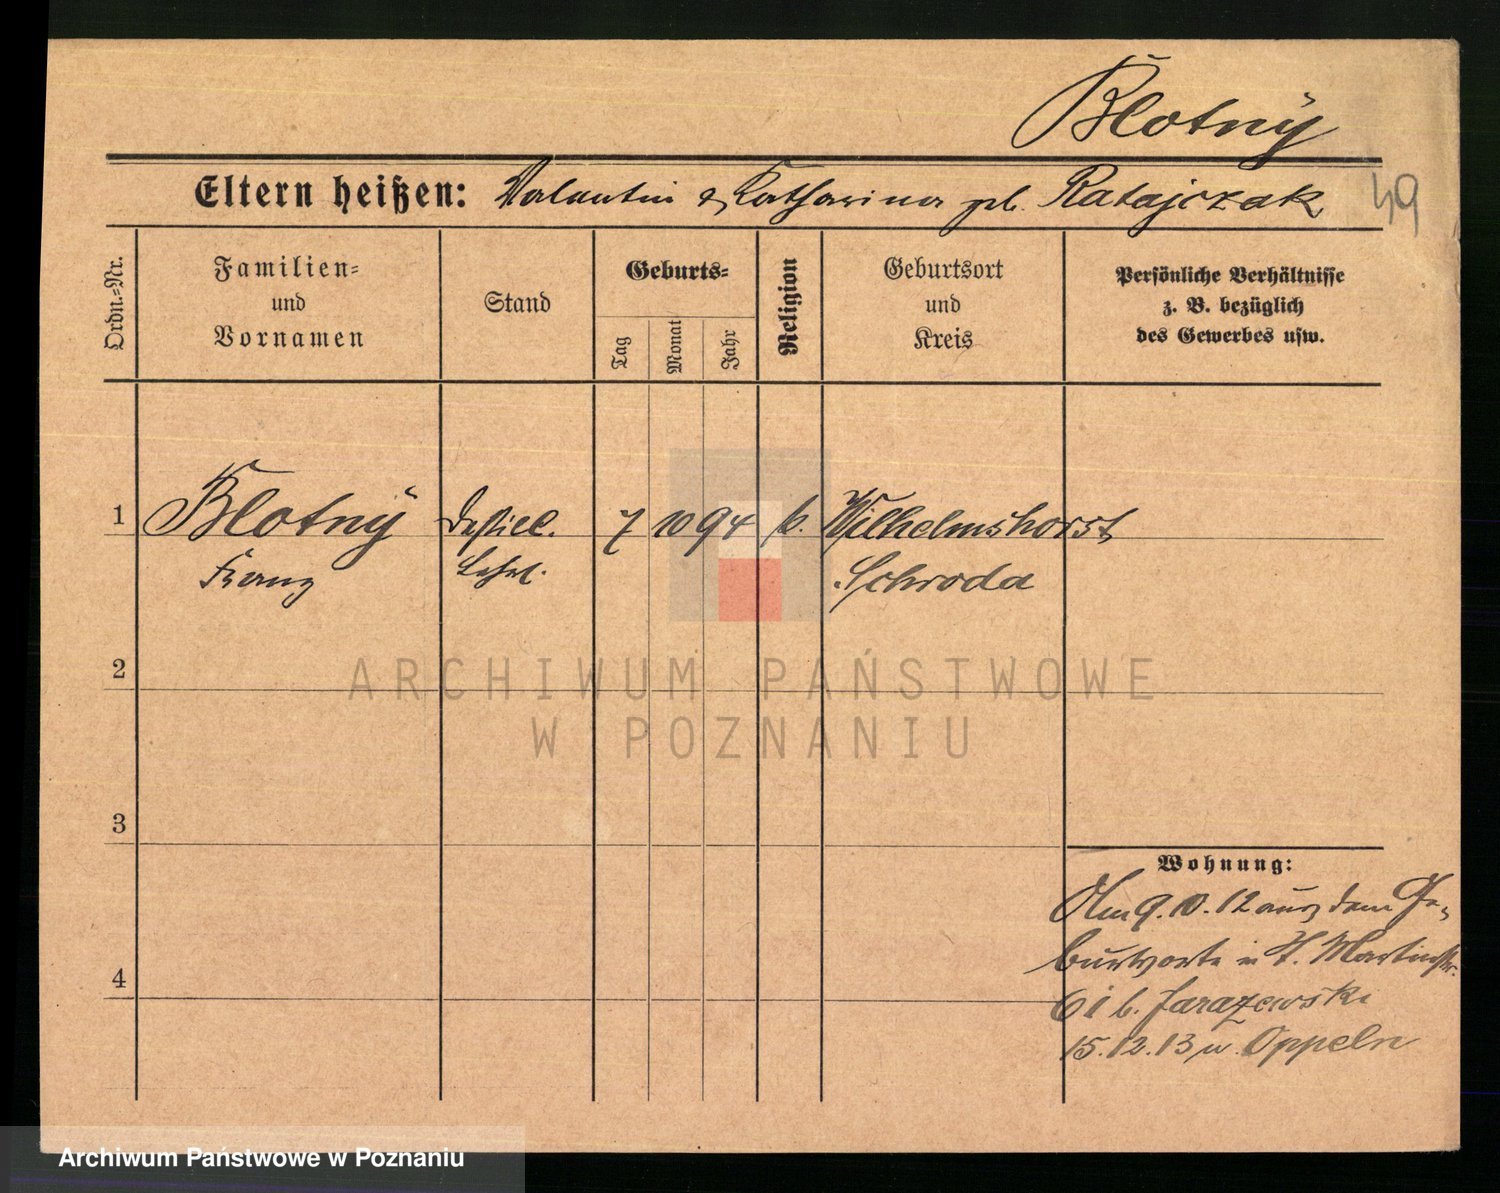 Blotný
Eltern heißen: Valentin & Katharina geb. Ratajczak
49
Ordn.-Nr.
Familien-
und
Vornamen
Stand
Geburts-
Tag
Monat
Jahr
Religion
Geburtsort
und
Kreis
Persönliche Verhältnisse
z. B. bezüglich
des Gewerbes usw.
1 Blotný Destill. 7 10 94 k. Wilhelmshorst
Franz Lehrl. Schroda
2
ARCHIWUM PAŃSTWOWE
W POZNANIU
3
4
Wohnung:
Am 9.10.12 aus dem Ge-
burtsorte in St. Martinstr.
61 b. Jarazewski
15.12.13 n. Oppeln
Archiwum Państwowe w Poznaniu